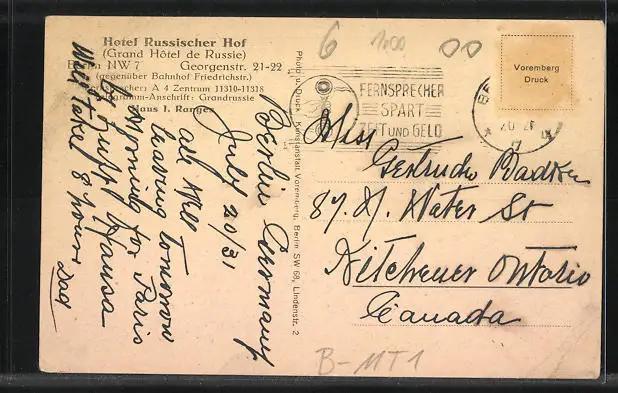 6 1.00 00
Hotel Russischer Hof
(Grand Hôtel de Russie)
Berlin NW 7 Georgenstr. 21-22
(gegenüber Bahnhof Friedrichstr.)
Fernsprecher: A 4 Zentrum 11310-11318
Telegramm-Anschrift: Grandrussie
Haus I. Ranges
Photo u. Druck: Kunstanstalt Voremberg, Berlin SW 68, Lindenstr. 2
FERNSPRECHER
SPART
ZEIT UND GELD
Voremberg
Druck
Berlin Germany
July 20/31
all well
leaving tomorrow
Morning for Paris
by Lufft Hansa
Will take 8 hours
Dad
Miss
Gertrude
87. N. Water St
Kitchener Ontario
Canada
B-MT1